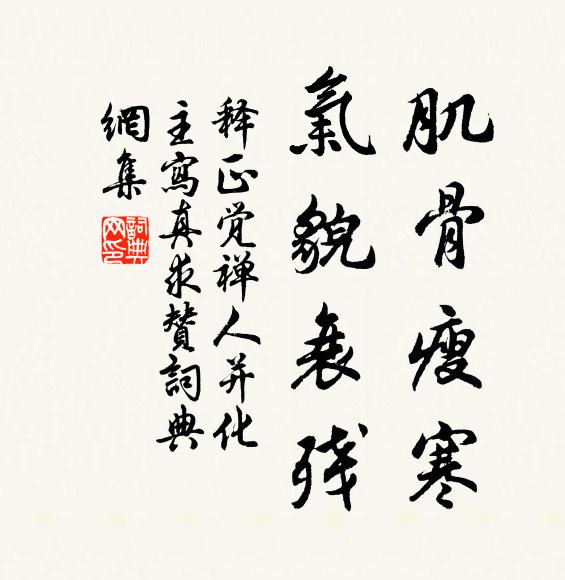 肌骨瘦寒
氣貌衰残
释正觉禅人并化
主寫真求贊詞典
網集
詞典
网印